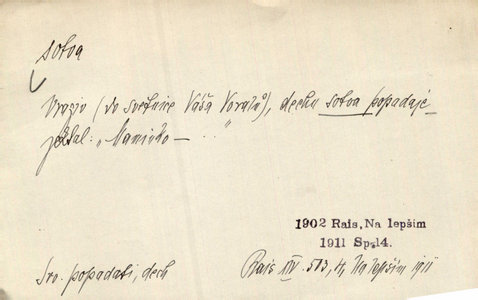 sotva
Vraziv (do světnice Váša Voralů), dechu sotva popadaje
ječel: „Maminko — ..."
1902 Rais, Na lepším
1911 Sp.14.
Srv. popadati, dech
Rais XIV. 513, 14, Na lepším 1911